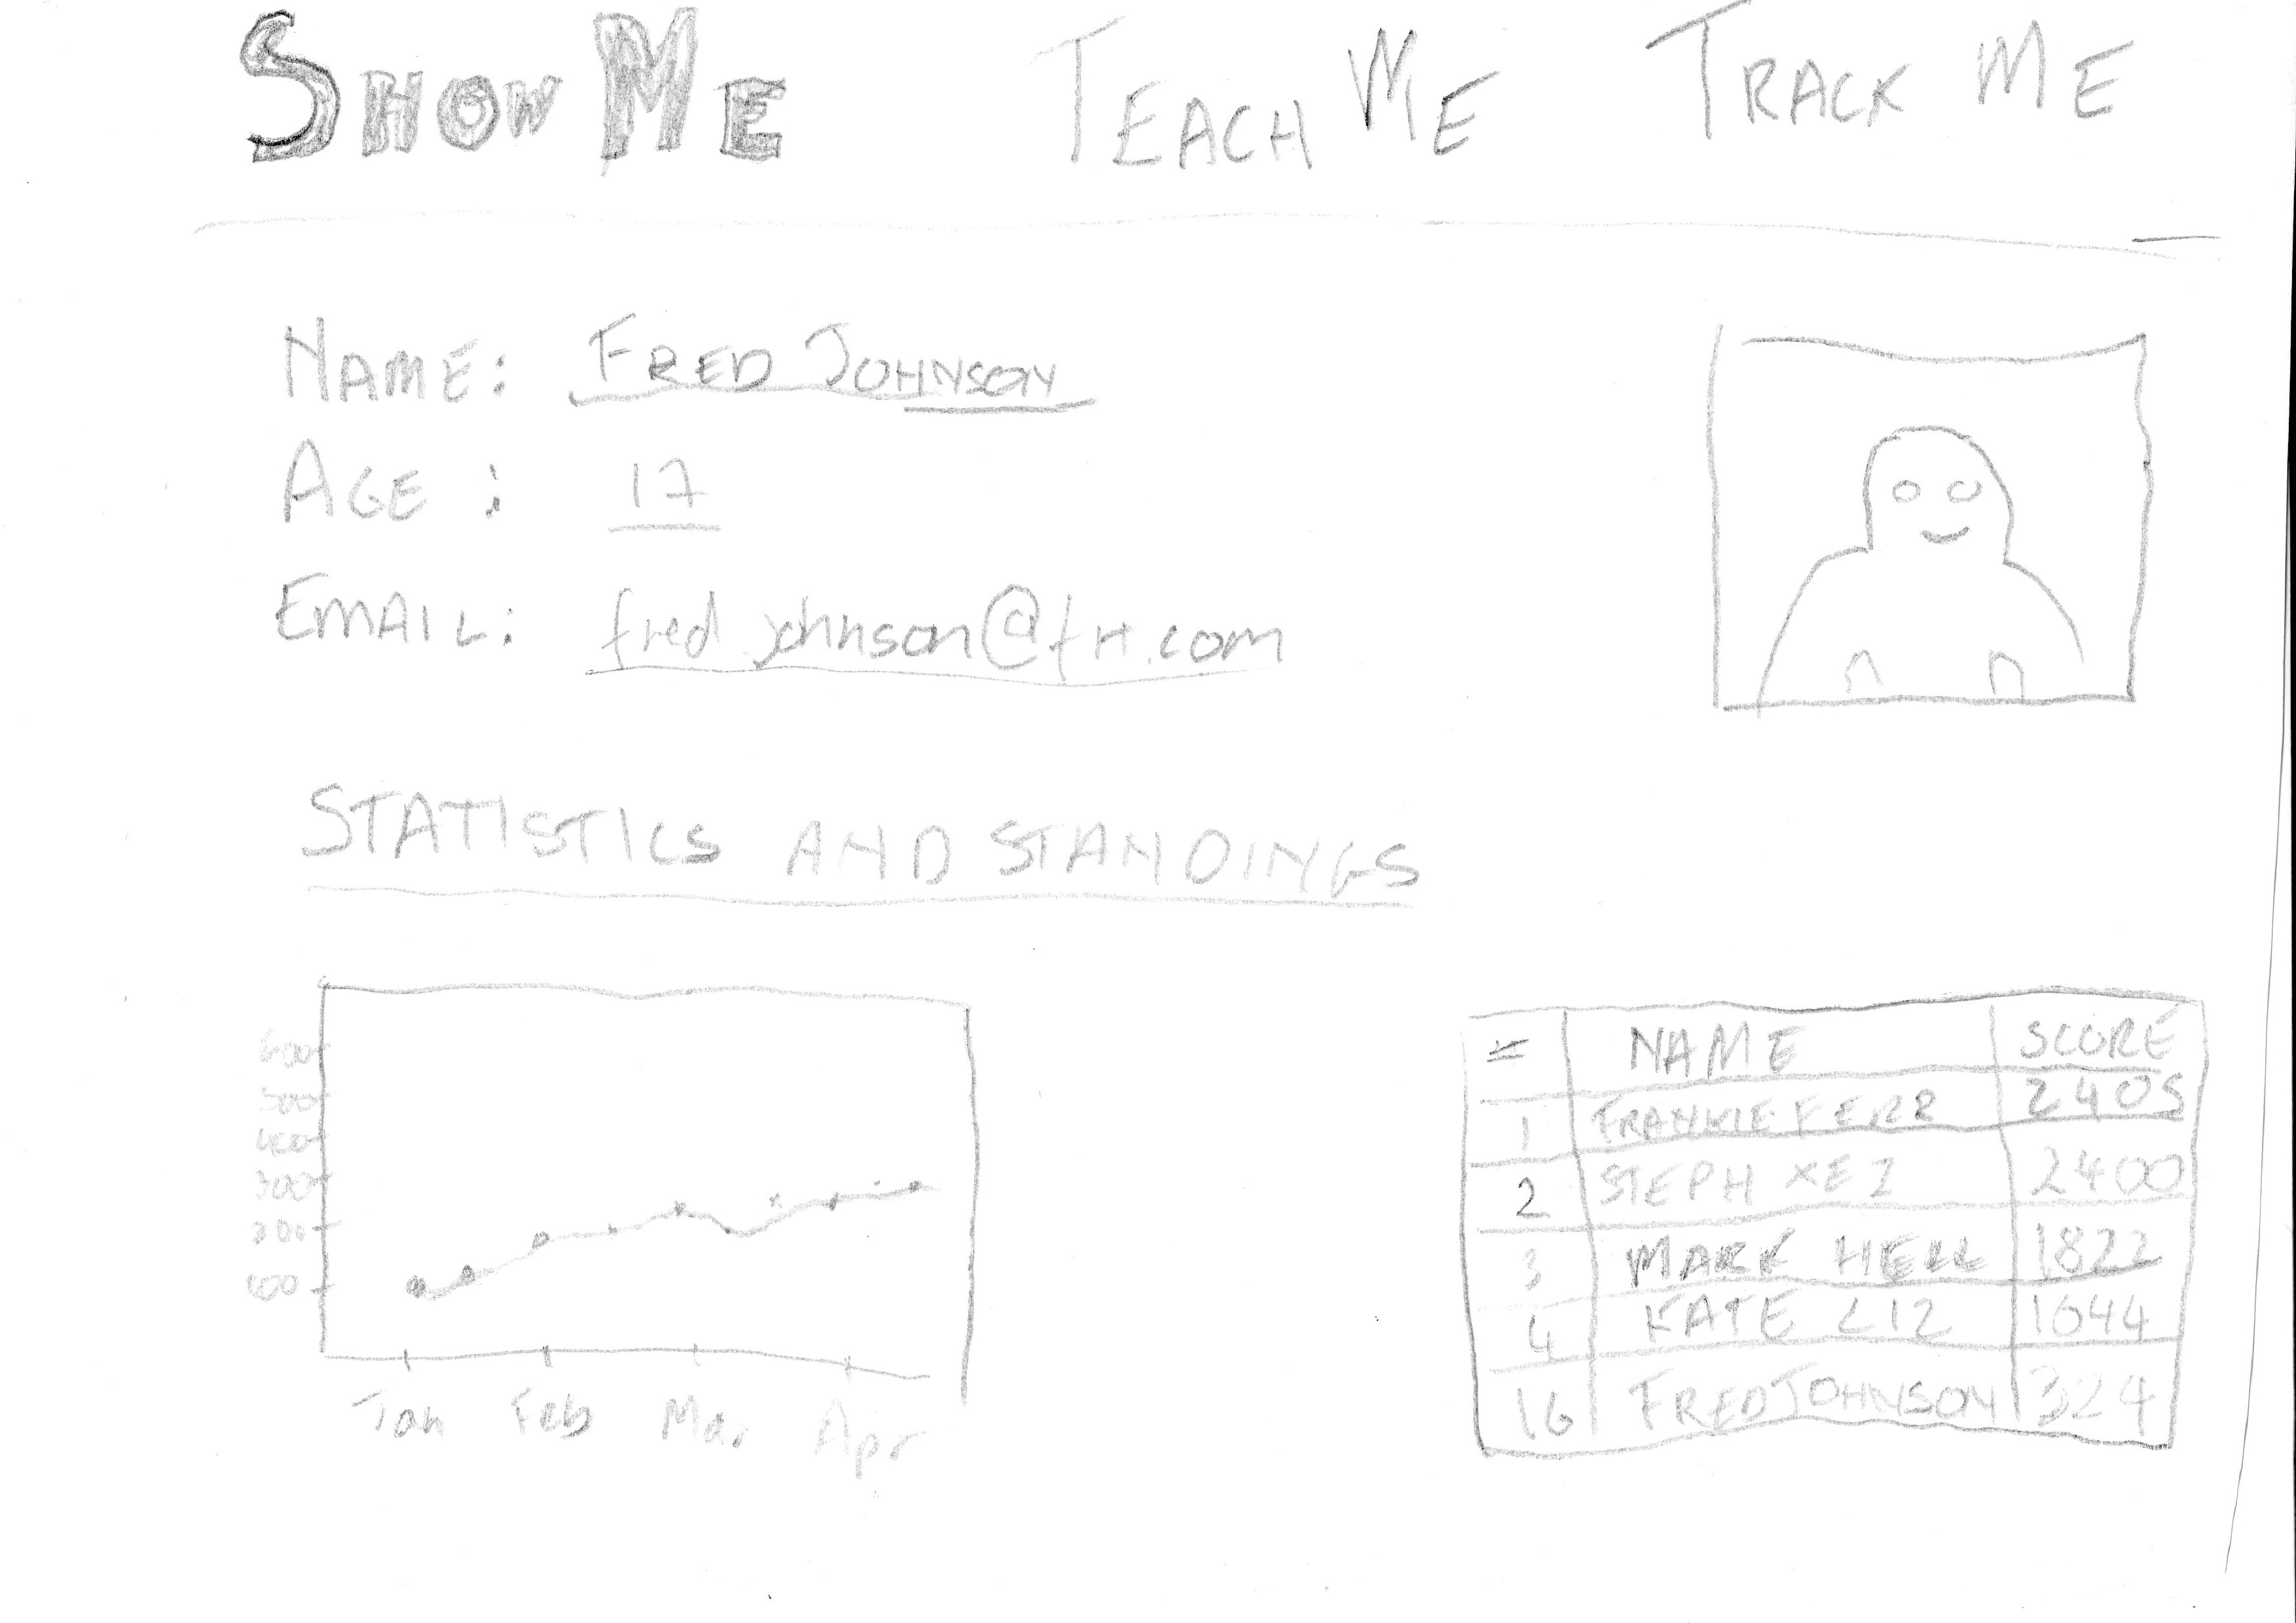 SHOW ME TEACH ME TRACK ME
NAME: FRED JOHNSON
AGE : 17
EMAIL: fred johnson@fH.com
STATISTICS AND STANDINGS
600
500
400
300
200
100
Jan Feb Mar Apr
# NAME SCORE
1 FRANKIE FERR 2405
2 STEPH XEZ 2400
3 MARK HELL 1822
4 KATE LIZ 1644
16 FRED JOHNSON 324